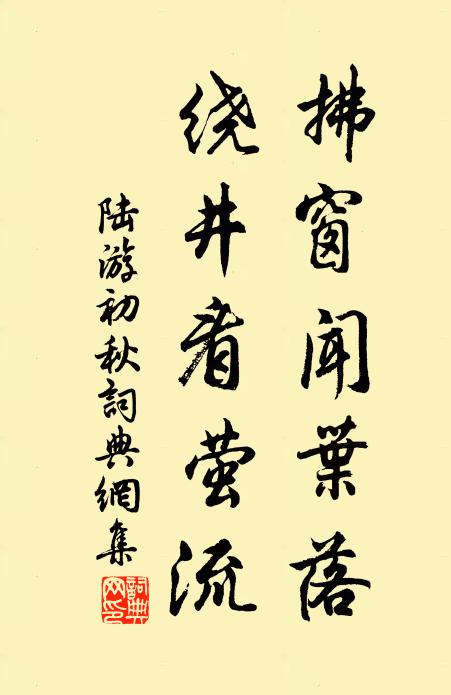 拂窗闻葉落
绕井看萤流
陆游初秋詞典網集
詞典